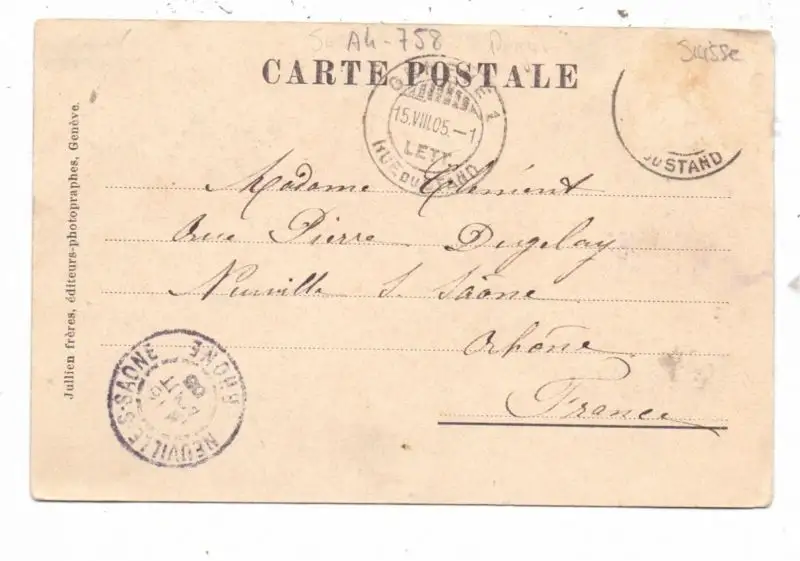 A4-758
Suisse
CARTE POSTALE
15.VIII.05.-1
LETT.
RUE DU STAND
DU STAND
Madame Clément
Rue Pierre Dugelay
Neuville S. Saône
Rhône
France
Jullien frères, éditeurs-photographes, Genève.
NEUVILLE-S-SAÔNE
RHONE